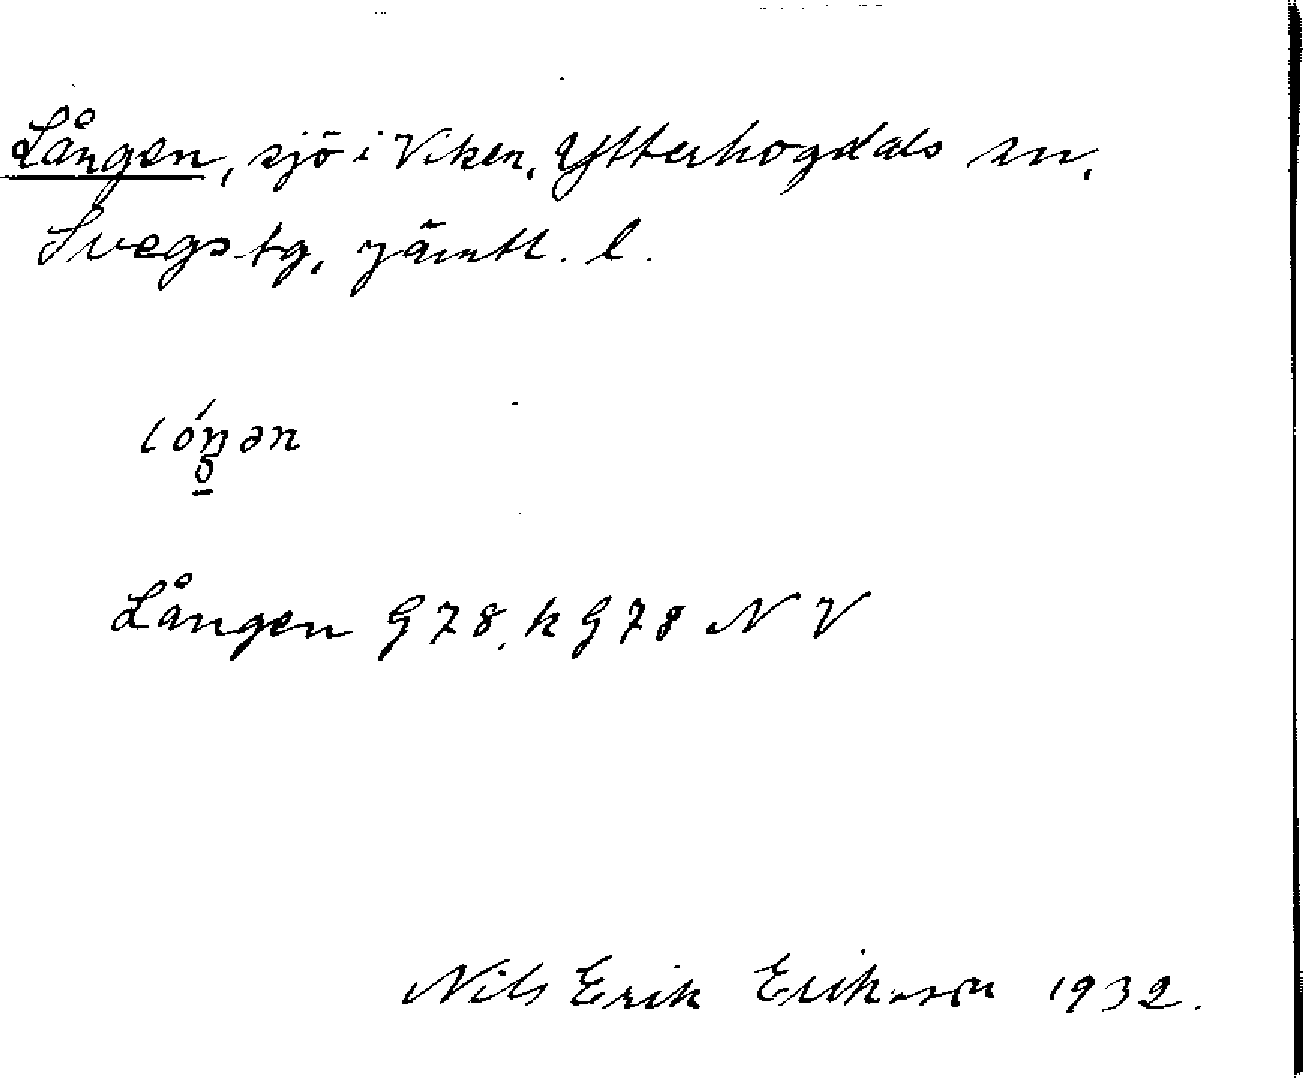 Lången, sjö i Viken, Ytterhogdals sn,
Svegs tg, Jämtl. l.
lóŋən
Lången G 78, k G 78 N V
Nils Erik Erikson 1932.